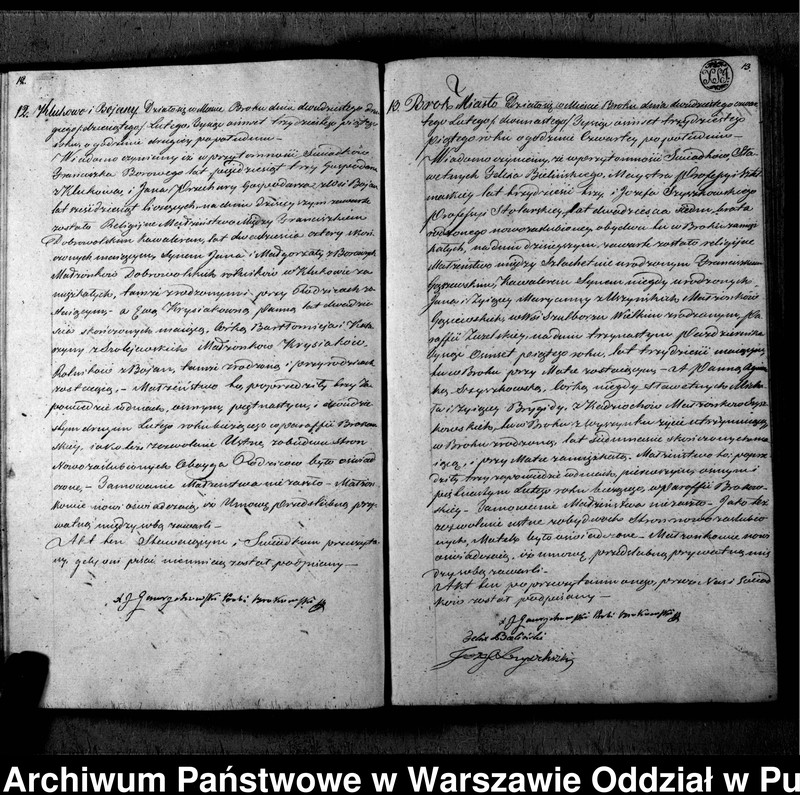 12.
12. Klukowo i Bojany Działo się w Mieście Broku dnia dwudziestego dru
giego/dziesiątego/ Lutego, Tysiąc ośmset trzydziestego piątego
roku, o godzinie drugiey popołudniu.
Wiadomo czyniemy iż w przytomności Świadków
Franciszka Borowego lat pięćdziesiąt trzy Gospodarza
z Klukowa, i Jana Gospodarza z Wsi Bojan
lat sześćdziesiąt liczących, na dniu dzisieyszym zawarte
zostało Religijne Małżeństwo Między Franciszkiem
Dobrowolskim kawalerem, lat dwadzieścia cztery skoń
czonych maiącym, Synem Jana i Małgorzaty z Borowych
Małżonków Dobrowolskich rolników w Klukowie za
mięszkałych, tamże zrodzonym i przy Rodzicach zo
staiącym — a Ewą Krysiakowną Panną lat dwadzie
ścia skończonych maiącą, Córką Bartłomieja i Kata
rzyny z Małżonków Krysiaków
Rolników z Bojan, tamże zrodzoną i przy rodzicach
zostaiącą, — Małżeństwo to poprzedziły trzy Za
powiedzie w dniach, osmym, piętnastym, i dwudzie
stym drugim Lutego roku bieżącego w paraffii Brokow
skiey, iako też zezwolenie Ustne, z obudwu stron
Nowozaślubionych Oboyga Rodziców było oświad
czone, — Tamowanie Małżeństwa nie zaszło — Małżon
kowie nowi oświadczaią, iż Umowę Przedślubną pry
watną między sobą zawarli —
Akt ten Stawaiącym i Świadkom przeczyta
ny, gdy oni pisać nieumieią został podpisany —
X J Proboszcz Brokowski

13.
13. Brok Miasto Działo się w Mieście Broku dnia dwudziestego czwar
tego Lutego/dwunastego/ Tysiąc ośmset trzydziestego
piątego roku o godzinie Czwartey popołudniu —
Wiadomo czyniemy, iż w przytomności Świadków, Sła
wetnych Felixa Bielińskiego, Maystra Profesyi
lat trzydzieści trzy i Jozefa Szyszkowskiego
Profesyi Stolarskiey, lat dwadzieścia siedm, brata
rodzonego nowozaślubioney, obydwu tu w Broku zamię
szkałych, na dniu dzisieyszym, zawarte zostało religijne
Małżeństwo między Szlachetnie urodzonym Franciszkiem
Kawalerem Synem niegdy urodzonych
Jana i żyiącey Maryanny z Małżonków
w Wsi Szulborze Wielkim zrodzonym, Pa
raffii Zuzelskiey, na dniu trzynastym Października
Tysiąc Ośmset piątego roku, lat trzydzieści maiącym
tu w Broku przy Matce zostaiącym — A Panną Agniesz
ką Szyszkowską, Córką niegdy Sławetnych Micha
ła i żyiącey Brygidy, z Małżonków Szysz
kowskich, tu w Broku z wyszynku życie utrzymuiącą
w Broku zrodzoną, lat siedmnaście skończonych ma
iącą, i przy Matce zamięszkałą. Małżeństwo to poprze
dziły trzy zapowiedzie w dniach, pierwszym, osmym i
piętnastym Lutego roku bieżącego, w Paraffii Brokow
skiey — Tamowanie Małżeństwa nie zaszło — Jako też
zezwolenie ustne z obydwóch Stron nowozaślubio
nych, Matek było oświadczone — Małżonkowie nowi
oświadczaią, iż umowę przedślubną prywatną mię
dzy sobą zawarli —
Akt ten po przeczytaniu onego, przez Nas i Świad
ków został podpisany —
X J Proboszcz Brokowski
Felix Bieliński
Jozef Szyszkowski
Archiwum Państwowe w Warszawie Oddział w Pu